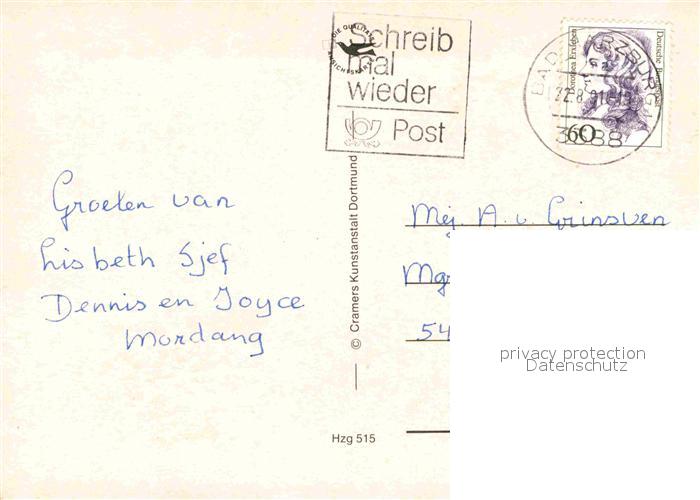 DIE QUALITÄTS
ANSICHTSKARTE
Schreib
mal
wieder
Post
BAD HARZBURG
22.8.91
3388
Dorothea Erxleben
Deutsche Bundespost
60
Groeten van
Lisbeth Sjef
Dennis en Joyce
Mordang
© Cramers Kunstanstalt Dortmund
Hzg 515
Mej. A. v. Grinsven
Mgr
54
privacy protection
Datenschutz